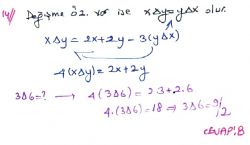 14) Değişme öz. var ise x∆y=y∆x olur.
x∆y = 2x+2y - 3(y∆x)
4(x∆y) = 2x+2y
3∆6=? → 4(3∆6) = 2.3+2.6
4.(3∆6)=18 ⇒ 3∆6=9/2
CEVAP:B